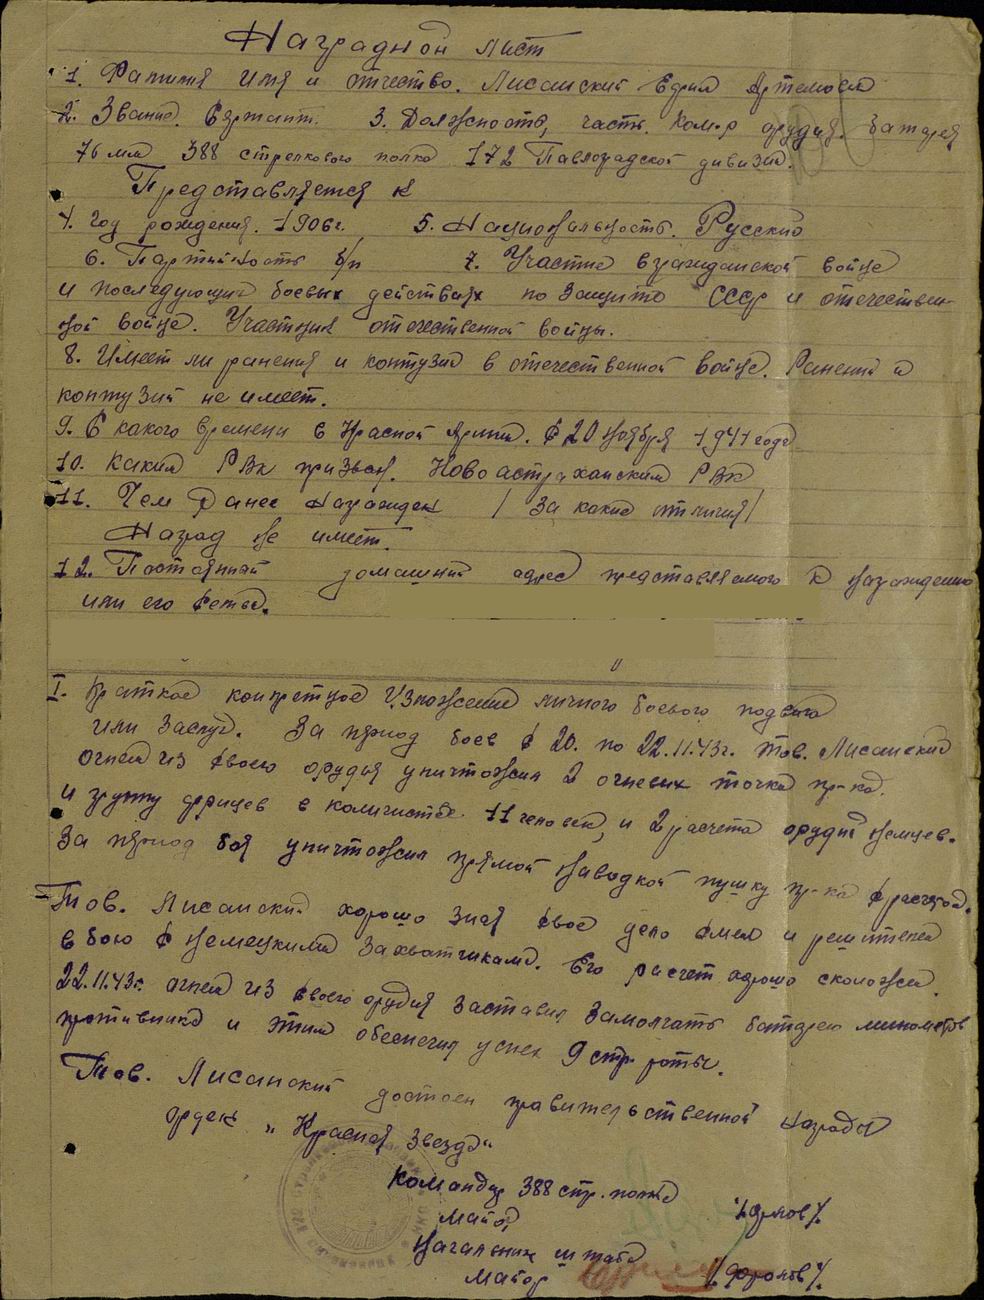 Наградной лист
1. Фамилия имя и отчество. Лисанский Ефим Артемович
2. Звание. Сержант. 3. Должность, часть. Ком-р орудия. Батарея
76 мм 388 стрелкового полка 172 Павлоградской дивизии.
Представляется к
4. Год рождения. 1906 г. 5. Национальность. Русский
6. Партийность б/п 7. Участие в гражданской войне
и последующие боевых действиях по защите СССР и отечествен-
ной войне. Участник отечественной войны.
8. Имеет ли ранения и контузии в отечественной войне. Ранений и
контузий не имеет.
9. С какого времени в Красной Армии. С 20 ноября 1941 года
10. Каким РВК призван. Ново астраханским РВК
11. Чем ранее награжден / За какие отличия/
Наград не имеет.
12. Постоянный домашний адрес представляемого к награждению
или его семьи.
I. Краткое конкретное изложение личного боевого подвига
или заслуг. За период боев с 20. по 22.11.43 г. тов. Лисанский
огнем из своего орудия уничтожил 2 огневых точки пр-ка.
и группу фрицев в количистве 11 человек, и 2 расчета орудий немцев.
За период боя уничтожил прямой наводкой пушку пр-ка с расчетом.
Тов. Лисанский хорошо зная свое дело смел и решителен
в бою с немецкими захватчиками. Его расчет хорошо сколожен.
22.11.43 г. огнем из своего орудия заставил замолчать батарею минометов
противника и этим обеспечил успех 9 стр. роты.
Тов. Лисанский достоен правительственной награды
орден „Красная Звезда“
Командир 388 стр. полка
Майор
Начальник штаба
Майор